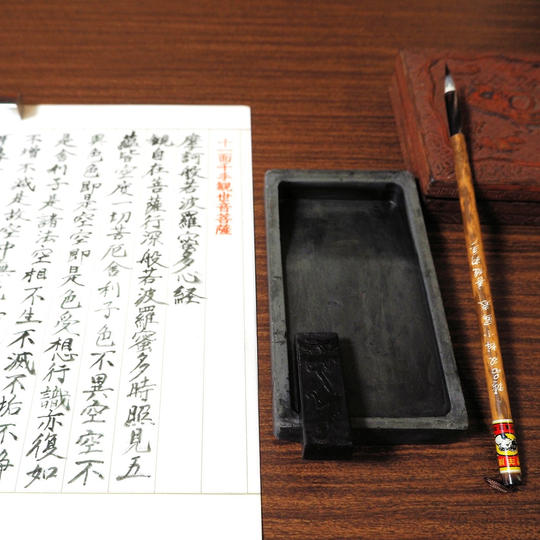 十一面千手観世音菩薩
摩訶般若波羅蜜多心経
観自在菩薩行深般若波羅蜜多時照見五
蘊皆空度一切苦厄舎利子色不異空空不
異色色即是空空即是色受想行識亦復如
是舎利子是諸法空相不生不滅不垢不浄
不増不減是故空中無色